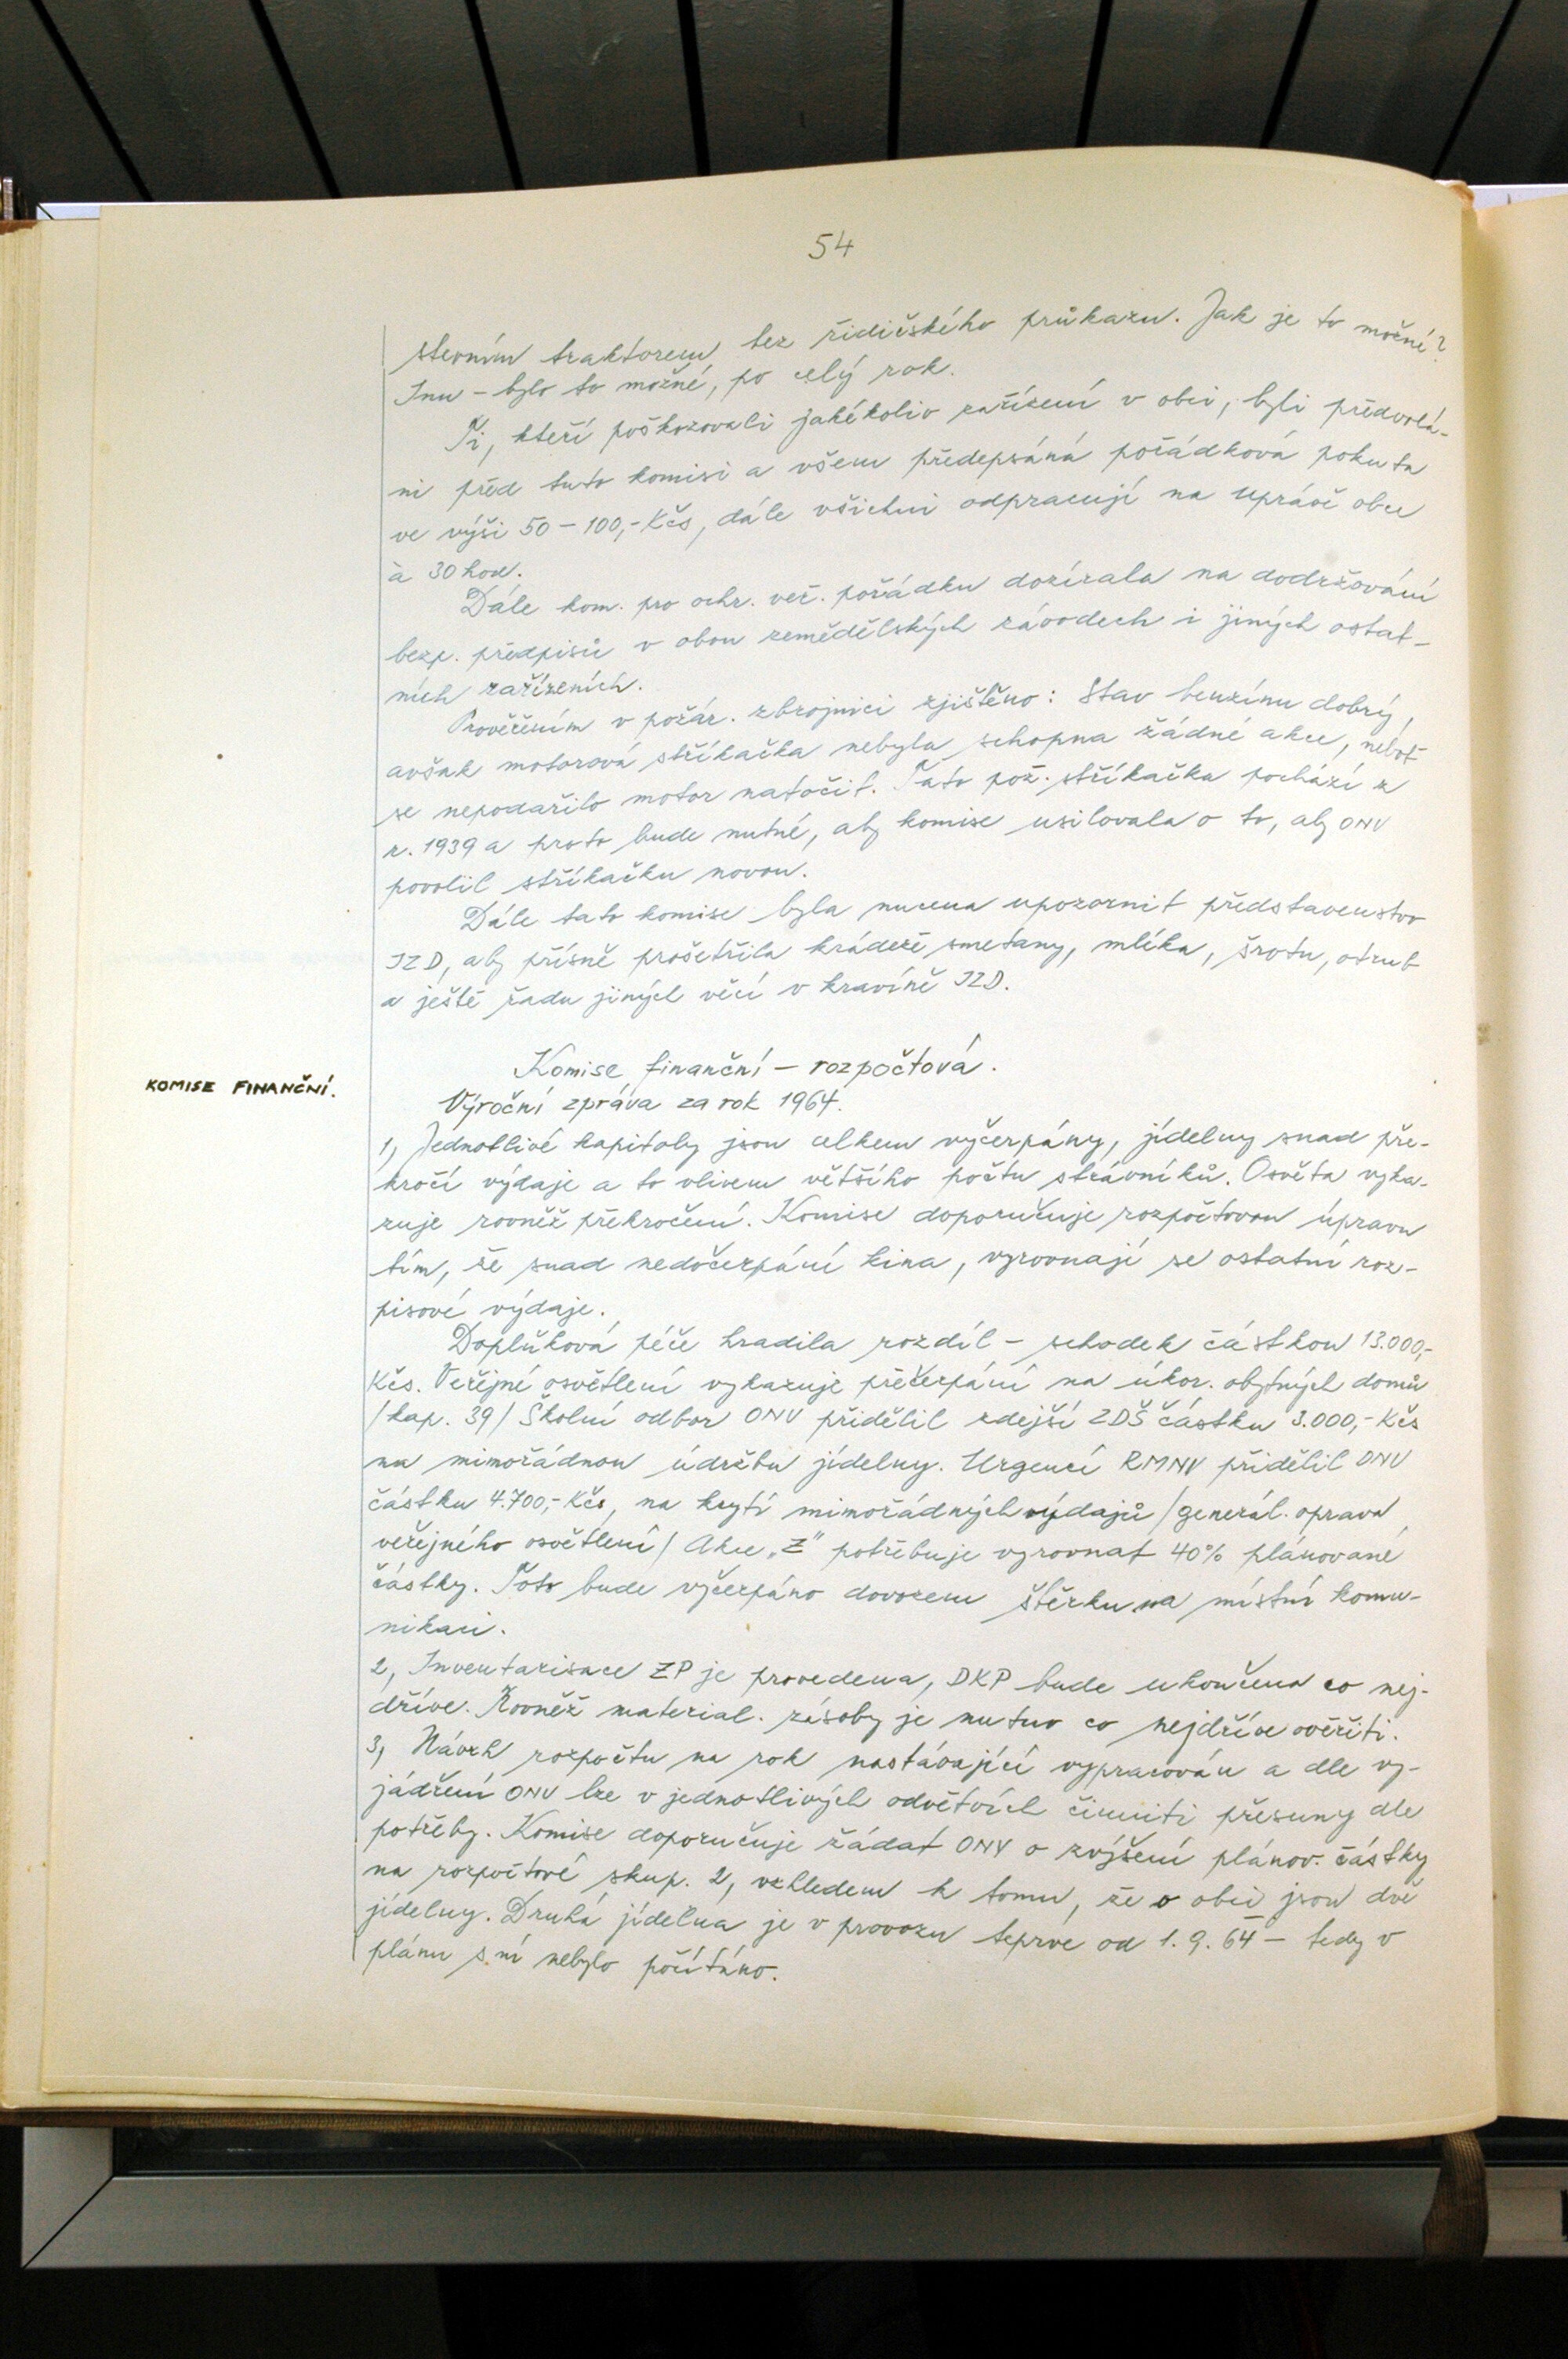 54
stevním traktorem, bez řidičského průkazu. Jak je to možné?
Inu - bylo to možné, po celý rok.
Ti, kteří poškozovali jakékoliv zařízení v obci, byli předvolá-
ni před tuto komisi a všem předepsána pořádková pokuta
ve výši 50 - 100,- Kčs, dále všichni odpracují na úpravě obce
à 30 hod.
Dále kom. pro ochr. veř. pořádku dozírala na dodržování
bezp. předpisů v obou zemědělských závodech i jiných ostat-
ních zařízeních.
Prověřením v požár. zbrojnici zjištěno: Stav benzínu dobrý,
avšak motorová stříkačka nebyla schopna žádné akce, neboť
se nepodařilo motor natočit. Tato pož. stříkačka pochází z
r. 1939 a proto bude nutné, aby komise usilovala o to, aby ONV
povolil stříkačku novou.
Dále tato komise byla nucena upozornit představenstvo
JZD, aby přísně prošetřila krádeže smetany, mléka, šrotu, otrub
a ještě řadu jiných věcí v kravíně JZD.
KOMISE FINANČNÍ.
Komise finanční - rozpočtová.
Výroční zpráva za rok 1964.
1, Jednotlivé kapitoly jsou celkem vyčerpány, jídelny snad pře-
kročí výdaje a to vlivem většího počtu strávníků. Osvěta vyka-
zuje rovněž překročení. Komise doporučuje rozpočtovou úpravu
tím, že snad nedočerpání kina, vyrovnají se ostatní roz-
pisové výdaje.
Doplňková péče hradila rozdíl - schodek částkou 13.000,-
Kčs. Veřejné osvětlení vykazuje přečerpání na úkor. obytných domů
/kap. 39/ Školní odbor ONV přidělil zdejší ZDŠ částku 3.000,- Kčs
na mimořádnou údržbu jídelny. Urgencí RMNV přidělil ONV
částku 4.700,- Kčs, na krytí mimořádných výdajů /generál. oprava
veřejného osvětlení/ Akce „Z" potřebuje vyrovnat 40% plánované
částky. Toto bude vyčerpáno dovozem štěrku na místní komu-
nikaci.
2, Inventarisace ZP je provedena, DKP bude ukončena co nej-
dříve. Rovněž material. zásoby je nutno co nejdříve ověřiti.
3, Návrh rozpočtu na rok nastávající vypracován a dle vy-
jádření ONV lze v jednotlivých odvětvích činiti přesuny dle
potřeby. Komise doporučuje žádat ONV o zvýšení plánov. částky
na rozpočtové skup. 2, vzhledem k tomu, že v obci jsou dvě
jídelny. Druhá jídelna je v provozu teprve od 1. 9. 64 - tedy v
plánu s ní nebylo počítáno.